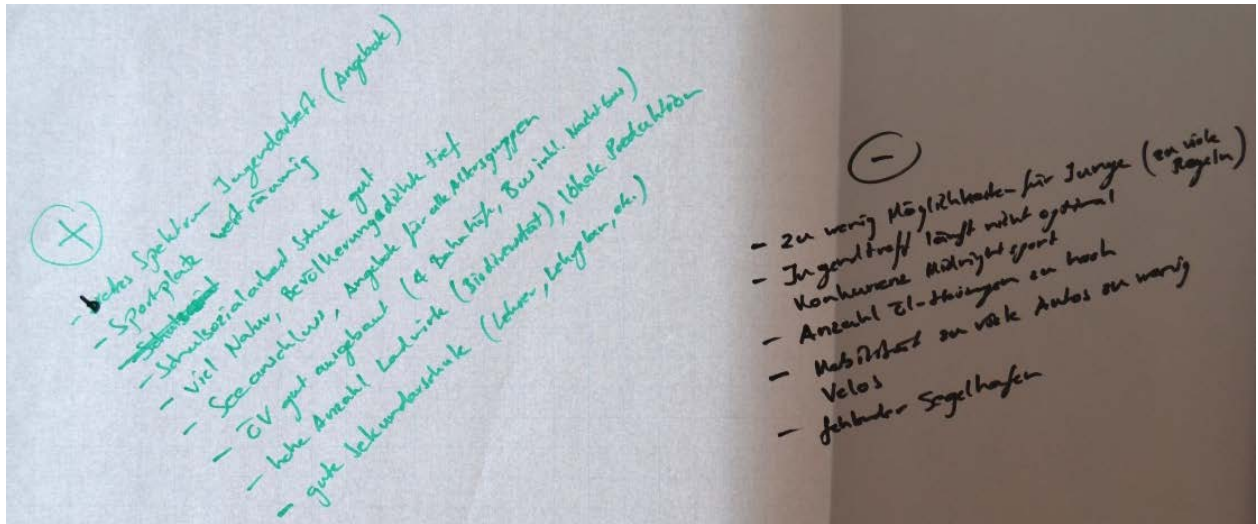 +
- breites Spektrum Jugendarbeit (Angebote)
- Sportplätze weiträumig
- Schulsozialarbeit Schule gut
- viel Natur, Bevölkerungsdichte tief
- Seeanschluss, Angebote für alle Altersgruppen
- ÖV gut ausgebaut (4 Bahnhöfe, Bus inkl. Nachtbus)
- hohe Anzahl Landwirte (Biodiversität), lokale Produktion
- gute Sekundarschule (Lehrer, Lehrplan, etc.)
-
- zu wenig Möglichkeiten für Junge (zu viele Regeln)
- Jugendtreff läuft nicht optimal
Konkurrenz Midnightsport
- Anzahl Öl-Heizungen zu hoch
- Mobilität zu viele Autos zu wenig
Velos
- fehlender Segelhafen